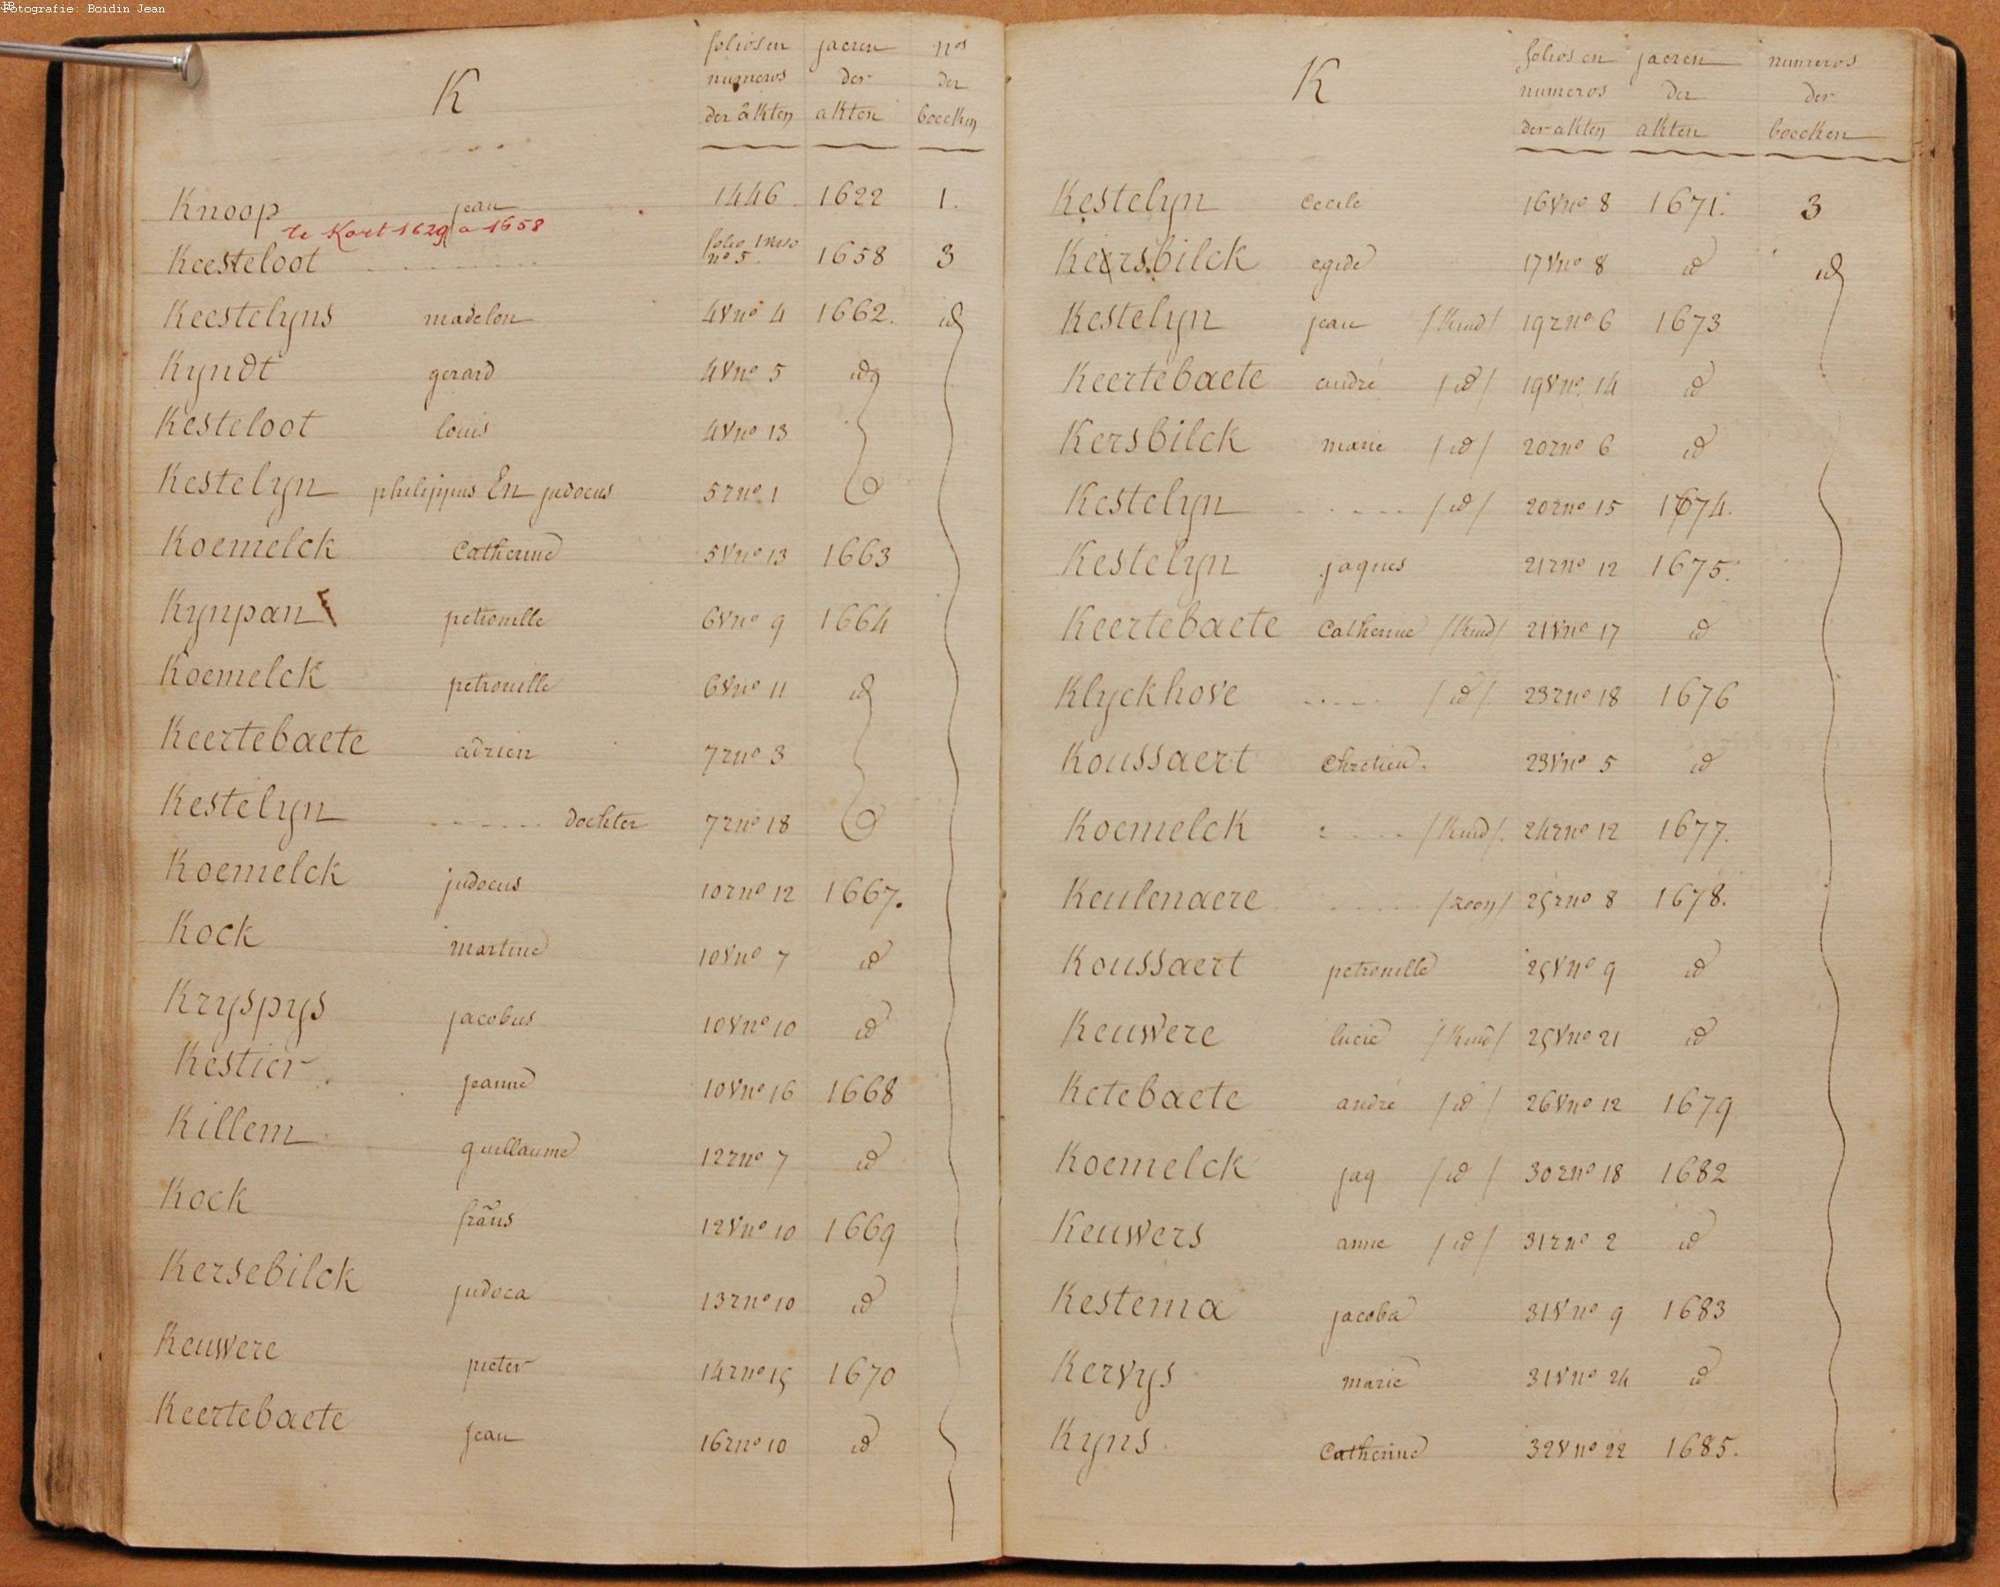 Fotografie: Boidin Jean
K
folios en jaeren nos
numeros der der
der akten akten boecken
Knoop jean 1446 1622 1.
te Kort 1629 a 1658
Keesteloot folio 1 reso no 5 1658 3
Keestelyns madelon 4vno 4 1662. id
Kyndt gerard 4vno 5 id
Kesteloot louis 4vno 13
Kestelyn philippus En judocus 5rno 1
Koemelck Catherine 5vno 13 1663
Kynpan petronille 6vno 9 1664
Koemelck petronille 6vno 11 id
Keertebaete adrien 7rno 3
Kestelyn dochter 7rno 18
Koemelck judocus 10rno 12 1667.
Kock martine 10vno 7 id
Kryspys jacobus 10vno 10 id
Kestier jeanne 10vno 16 1668
Killem guillaume 12rno 7 id
Kock frans 12vno 10 1669
Kersebilck judoca 13rno 10 id
Keuwere pieter 14rno 15 1670
Keertebaete jean 16rno 10 id
K
folios en jaeren numeros
numeros der der
der akten akten boecken
Kestelyn Cecile 16vno 8 1671. 3
Kersbilck egide 17vno 8 id id
Kestelyn jean /Kind/ 19rno 6 1673
Keertebaete andré /id/ 19vno 14 id
Kersbilck marie /id/ 20rno 6 id
Kestelyn /id/ 20rno 15 1674.
Kestelyn jaques 21rno 12 1675.
Keertebaete Catherine /Kind/ 21vno 17 id
Klyckhove /id/ 23rno 18 1676
Koussaert Chretien. 23vno 5 id
Koemelck /Kind/. 24rno 12 1677.
Keulenaere /zoon/ 25rno 8 1678.
Koussaert petronille 25vno 9 id
Keuwere lucie /Kind/ 25vno 21 id
Ketebaete andré /id/ 26vno 12 1679
Koemelck jaq /id/ 30rno 18 1682
Keuwers anne /id/ 31rno 2 id
Kestema jacoba 31vno 9 1683
Kervys marie 31vno 24 id
Kyns Catherine 32vno 22 1685.